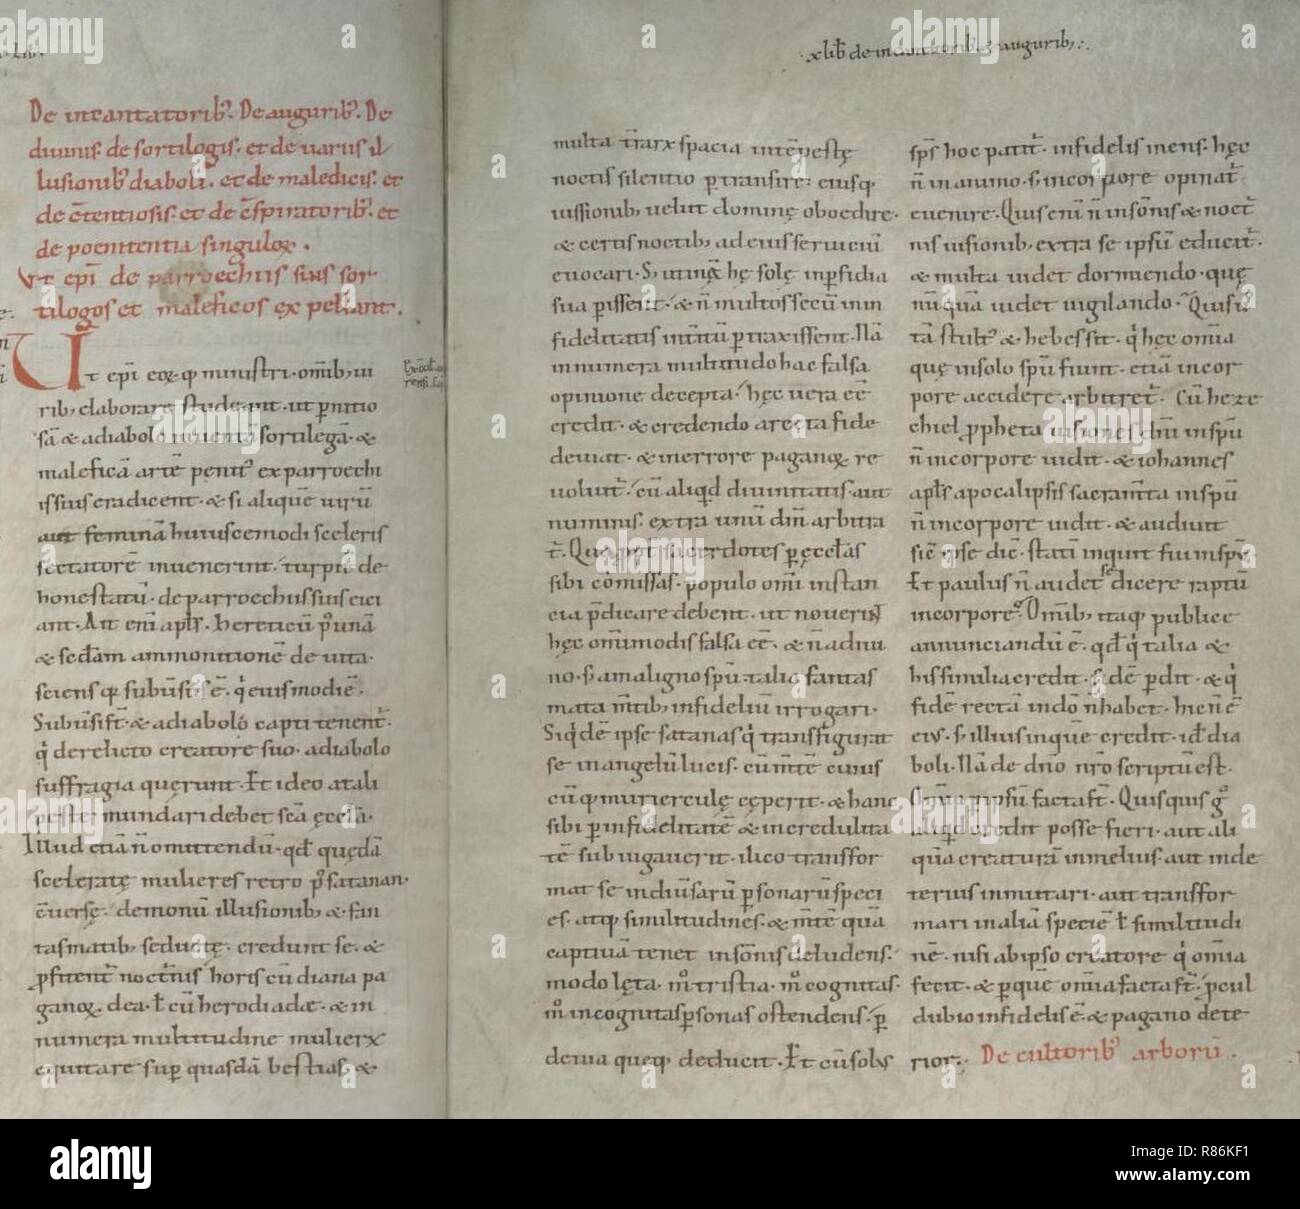 x lib̄ de incantatorib; & augurib;
De incantatorib᾽. De augurib᾽. De
diuinis. de sortilogis. et de uariis il
lusionib᾽ diaboli. et de maledicis. et
de c̄tentiosis. et de c̄spiratorib᾽. et
de poenitentia singuloꝝ.
Vt ep̄i de parroechiis suis sor
tilogos et maleficos ex pellant.
Vt ep̄i eoꝝq; ministri. omīb; ui
rib; elaborare studeant. ut p̄nitio
sā & a diabolo inuentā sortilegā. &
maleficā artē penit᾽ ex parroechi
is suis eradicent. & si aliquē uirū
aut feminā huiuscemodi sceleris
sectatorē inuenerint. turpit̄ de
honestatū. de parroechiis suis eici
ant. Ait eni apl̄s. Hereticū p᾽ unā
& sedam ammonitionē de uita.
sciens q; subūsus ē. q̓ eiusmodi ē.
Subūsi s̄t. & a diabolo capti tenent᾽.
q̓ derelicto creatore suo. a diabolo
suffragia quęrunt. Et ideo a tali
peste mundari debet sc̄a ęccła.
Illud etiā n̄ omittendū. qđ quędā
sceleratę mulieres retro p᾽ satanan
c̄uersę. demonū illusionib; & fan
tasmatib; seductę. credunt se. &
ꝓfitent᾽ nocturnis horis cū diana pa
ganoꝝ dea. ł cū herodiadæ. & in
numera multitudine mulierꝝ
equitare sup̄ quasdā bestias. &
multa terraꝝ spacia intēpestę
noctis silentio ꝑtransire. eiusq;
iussionib; uelut dominę oboedire.
& certis noctib; ad eius seruiciū
euocari. S; utinā hę solę in ꝑfidia
sua ꝑissent. & n̄ multos secū in in
fidelitatis intitū ꝑtraxissent. Nā
innumera multitudo hac falsa
opinione decepta. hęc uera eē
credit. & credendo a recta fide
deuiat. & in errore paganoꝝ re
uoluit᾽. cū aliqđ diuinitatis. aut
numinis. extra unū dm̄ arbitra
t᾽. Qua ꝓpt̄ sacerdotes ꝑ ęccłas
sibi cōmissas. populo omi instan
cia p̄dicare debent. ut nouerint
hęc omimodis falsa eē. & n̄ a diui
no. s; a maligno spū talia fantas
mata mtib; infideliū irrogari.
Siqdē ipse satanas q̓ transfigurat
se in angelū lucis. cū mtē cuius
cūq; muliercule cęperit. & hanc
sibi ꝑ infidelitatē & incredulita
tē subiugauerit. ilico transfor
mat se in diūsarū ꝑsonarū speci
es. atq; similitudines. & mtē quā
captiuā tenet in sōnis deludens.
modo lęta. m̊ tristia. m̊ cognitas.
m̊ incognitas ꝑsonas ostendens. ꝑ
deuia queq; deducit. Et cū solus
sp̄s hoc patit᾽. infidelis mens. hęc
n̄ in animo. s; in corpore opinat᾽
euenire. Quis eni n̄ in sōnis & noct᾽
nis uisionib; extra se ipsū educit᾽.
& multa uidet dormiendo. quę
nūquā uidet uigilando. Quis u᾽
tā stult᾽ & hebes sit. q̓ hęc omīa
quę in solo spū fiunt. etiā in cor
pore accidere arbitret᾽. Cū heze
chiel ꝓpheta uisiones dni in spū
n̄ in corpore uidit. & iohannes
apl̄s apocalipsis sacramta in spū
n̄ in corpore uidit. & audiuit
sic ipse dic̄. statī inquit fui in spū
Et paulus n̄ audet se dicere raptū
in corpore. Omib; itaq; publice
annunciandū ē. qđ q̓ talia &
his similia credit. fidē ꝑdit. & q̓
fidē rectā in dnō n̄ habet. hic n̄ ē
ei᾽. s; illius in quē credit. id ē dia
boli. Nā de dnō n̄ro scriptū est.
Omia ꝑ ipsū facta s̄t. Quisquis g̊
aliqd credit posse fieri. aut ali
quā creaturā in melius. aut in de
terius inmutari. aut transfor
mari in aliā speciē ł similitudi
nē. nisi ab ipso creatore q̓ omīa
fecit. & ꝑ quē omīa facta s̄t. ꝓcul
dubio infidelis ē. & pagano dete
rior.
De cultorib᾽ arborū.